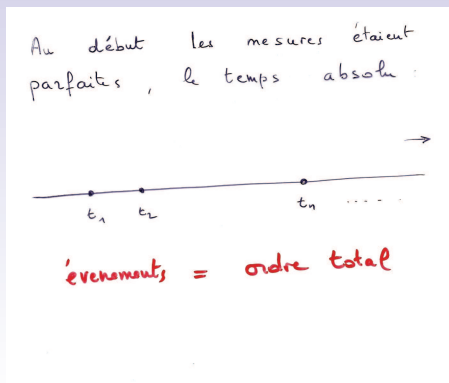 Au début les mesures étaient
parfaites, le temps absolu :
→
t₁ t₂ tₙ .....
évenements = ordre total